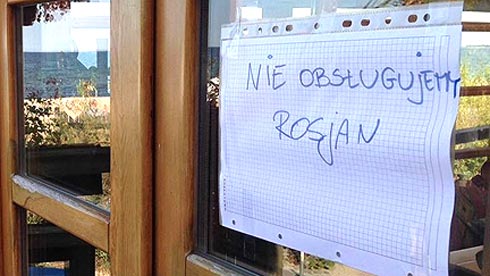 NIE OBSŁUGUJEMY
ROSJAN